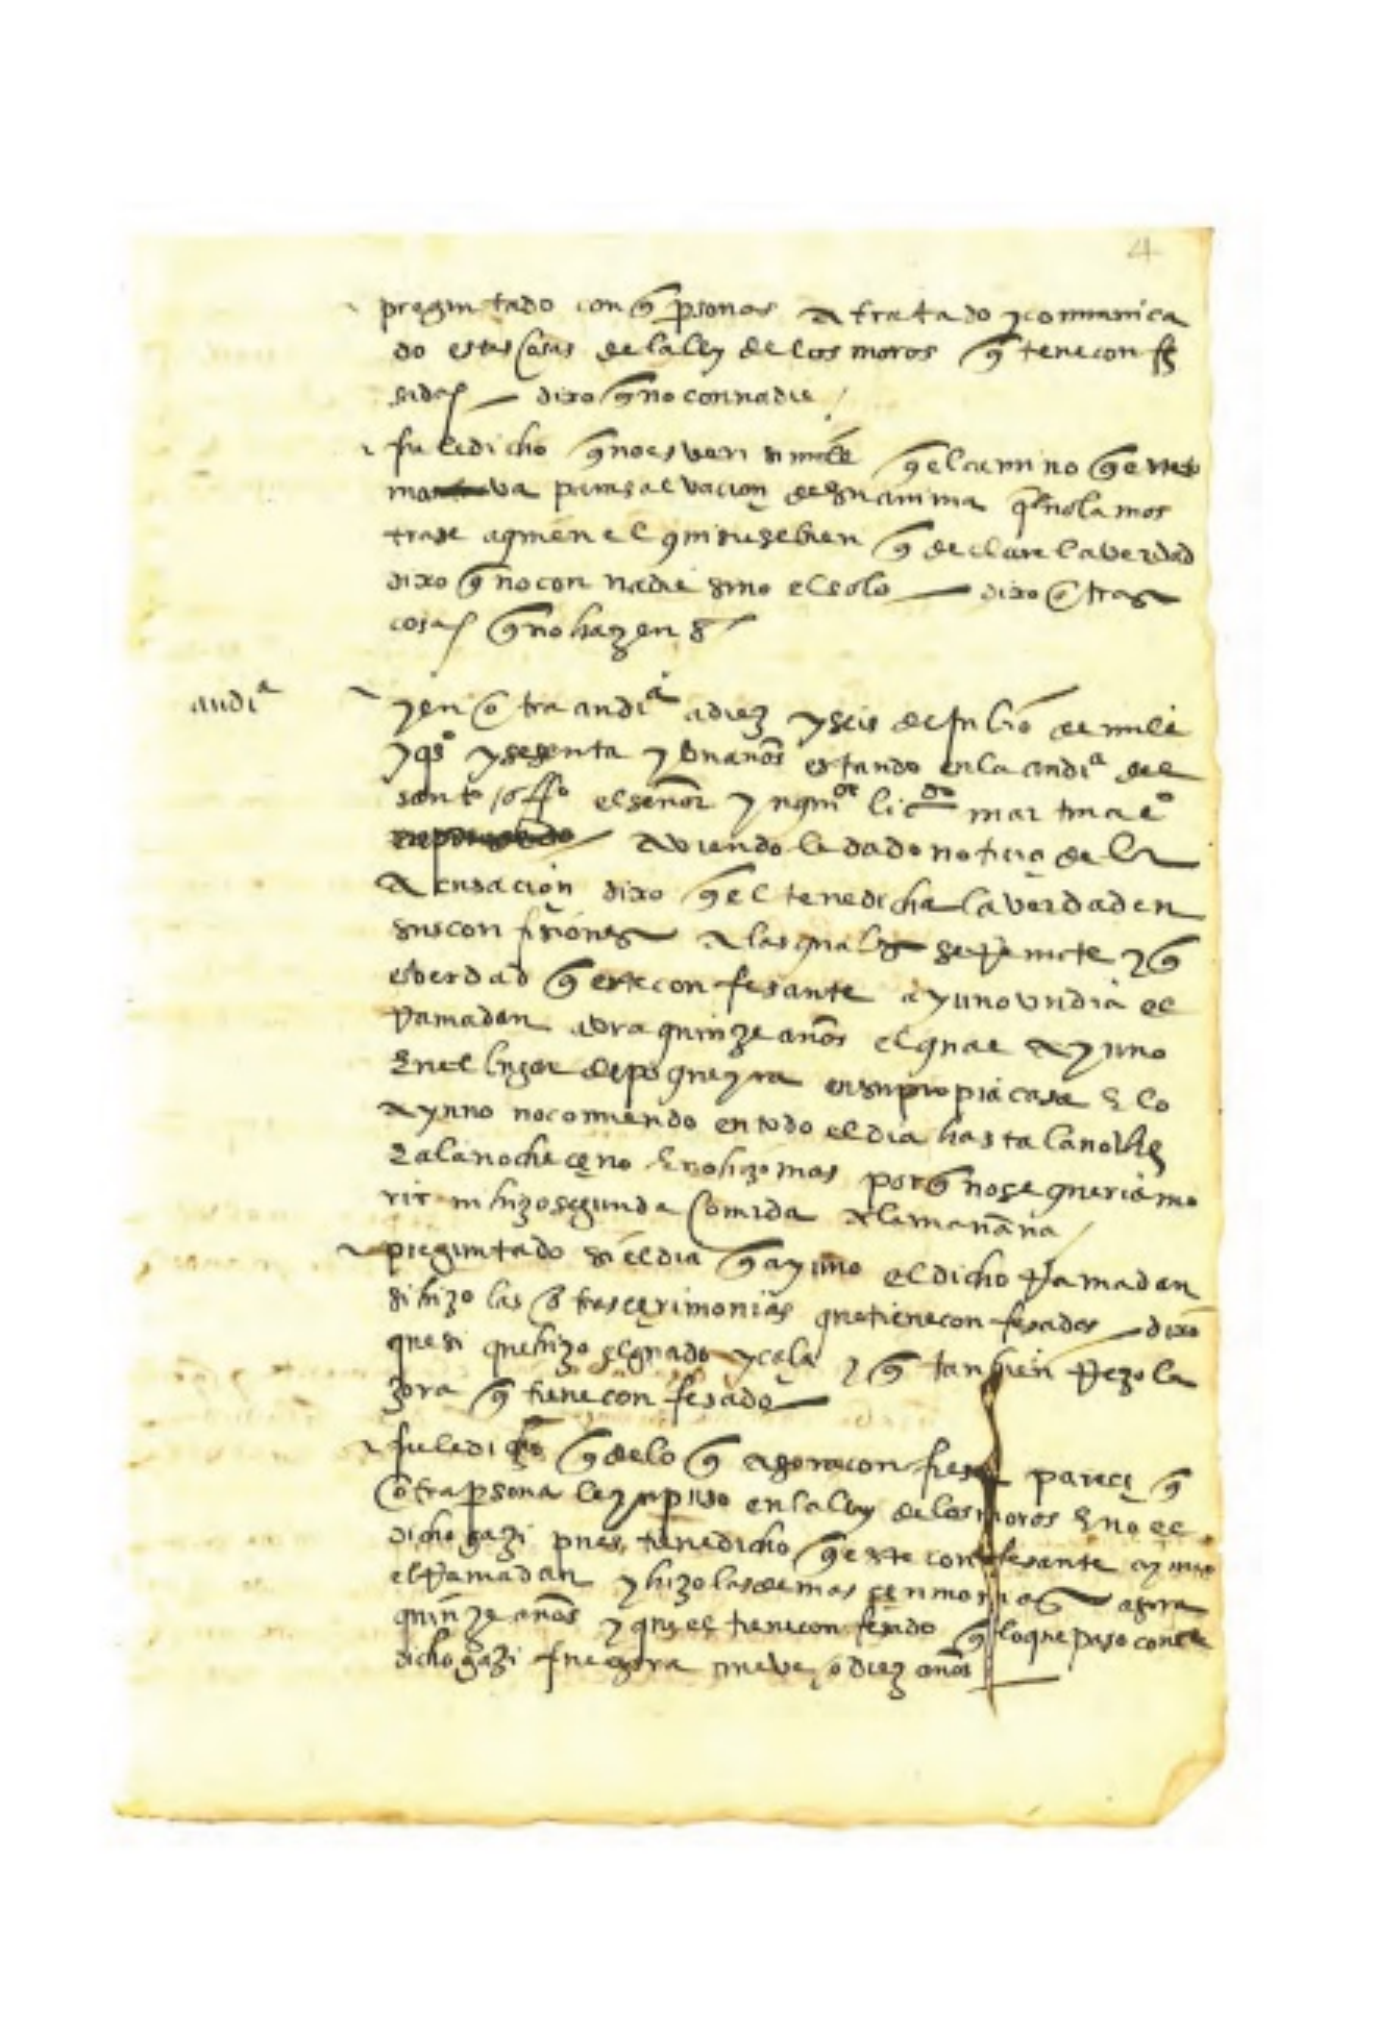 4
preguntado con q personas a tratado y comunica
do estas cosas de la ley de los moros q tiene confe
sadas — dixo q no con nadie
fuele dicho q no es veri simile q el camino q este
va para salvacion de su anima q no la mos
trase a quien el quisiese bien q declare la verdad
dixo q no con nadie sino el solo — dixo otras
cosas q no hazen
audiª
y en otra audiª a diez y seis de julio de mill e
y qsº y sesenta y un años estando en la audiª del
santo offº el señor ynqqor licdo martin alº
aviendole dado noticia de la
acusaçion dixo q el tiene dicha la verdad en
sus confisiones a las quales se remite y q
es verdad q este confesante ayuno un dia el
Ramadan abra quinze años el qual ayuno
en el lugar de poqueyra en su propia casa e lo
ayuno no comiendo en todo el dia hasta la noche
e a la noche çeno e no hizo mas porq no se queria mo
rir ni hizo segunda comida a la mañana
preguntado si el dia q ayuno el dicho Ramadan
si hizo las otras çerimonias que tiene confesadas — dixo
que si que hizo el guado y çala y q tanbien Rezo la
zora q tiene confesado
fuele dicho q de lo q agora confiesa pareçe q
otra persona le ynpuso en la ley de los moros e no el
dicho gazi pues tiene dicho q este confesante ayuno
el Ramadan y hizo las demas çerimonias agora
quinze años y que el tiene confesado q lo que paso con el
dicho gazi fue agora nueve o diez años